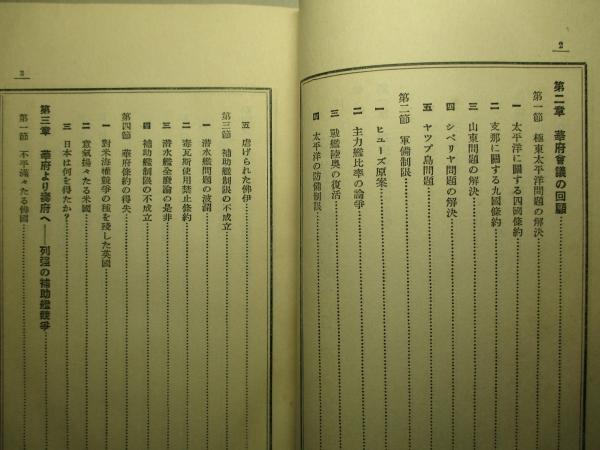 2
第二章 華府會議の回顧
第一節 極東太平洋問題の解決
一 太平洋に關する四國條約
二 支那に關する九國條約
三 山東問題の解決
四 シベリヤ問題の解決
五 ヤツプ島問題
第二節 軍備制限
一 ヒューズ原案
二 主力艦比率の論爭
三 戰艦陸奥の復活
四 太平洋の防備制限
3
五 虐げられた佛伊
第三節 補助艦制限の不成立
一 潜水艦問題の波瀾
二 毒瓦斯使用禁止條約
三 潜水艦全廢論の是非
四 補助艦制限の不成立
第四節 華府條約の得失
一 對米海權競爭の種を殘した英國
二 意氣揚々たる米國
三 日本は何を得たか?
第三章 華府より壽府へ――列强の補助艦競爭
第一節 不平滿々たる佛國